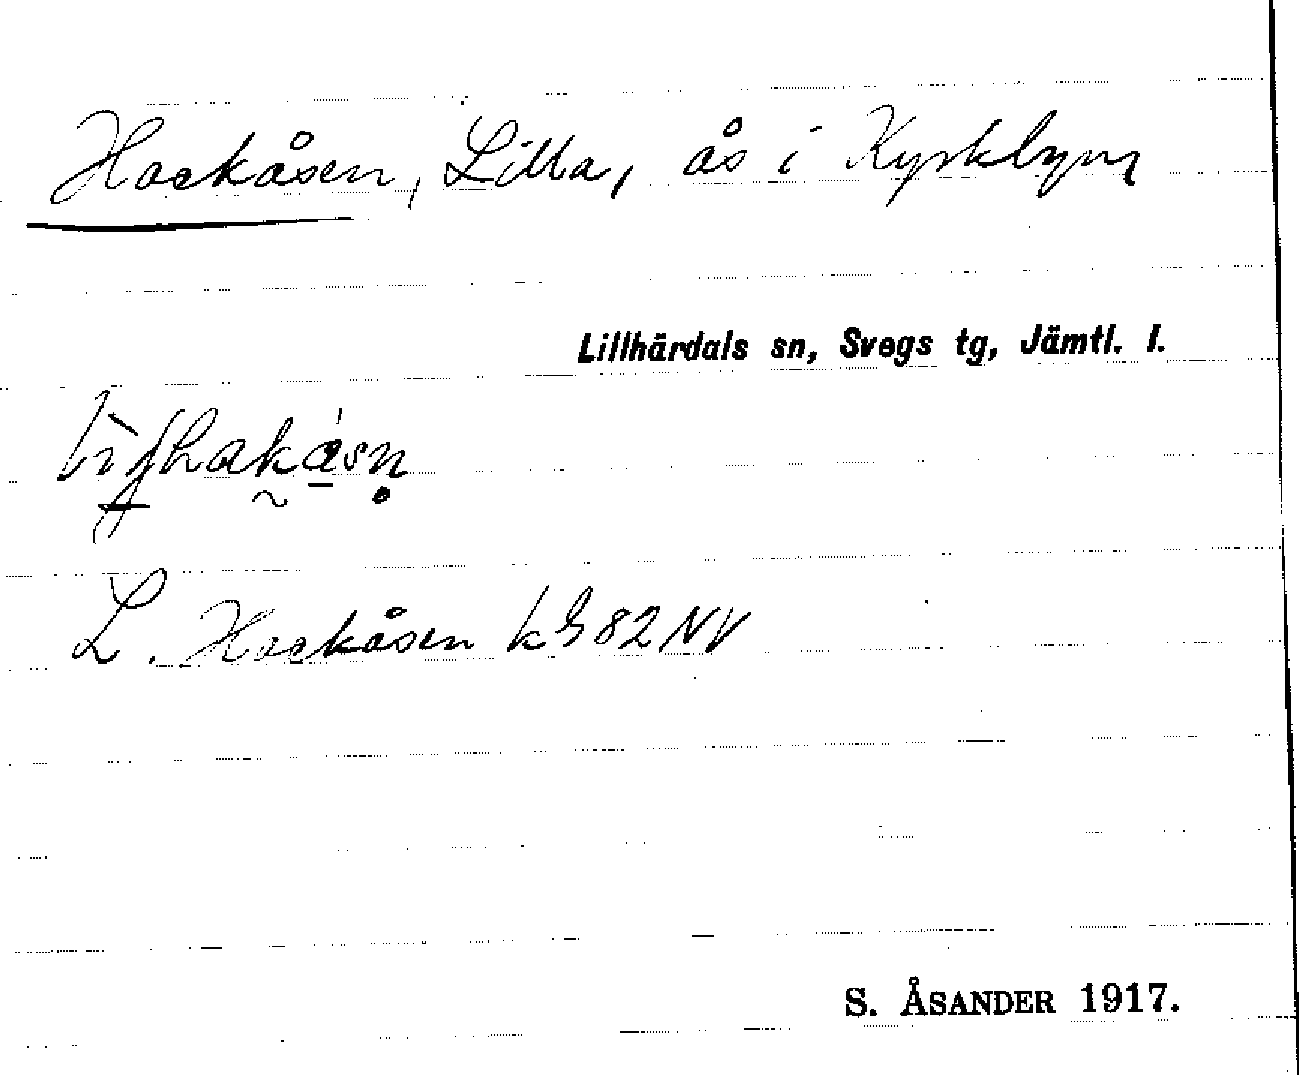 Hockåsen, Lilla, ås i Kyrkbyn
Lillhärdals sn, Svegs tg, Jämtl. l.
L. Hockåsen kG 82 NV
S. ÅSANDER 1917.